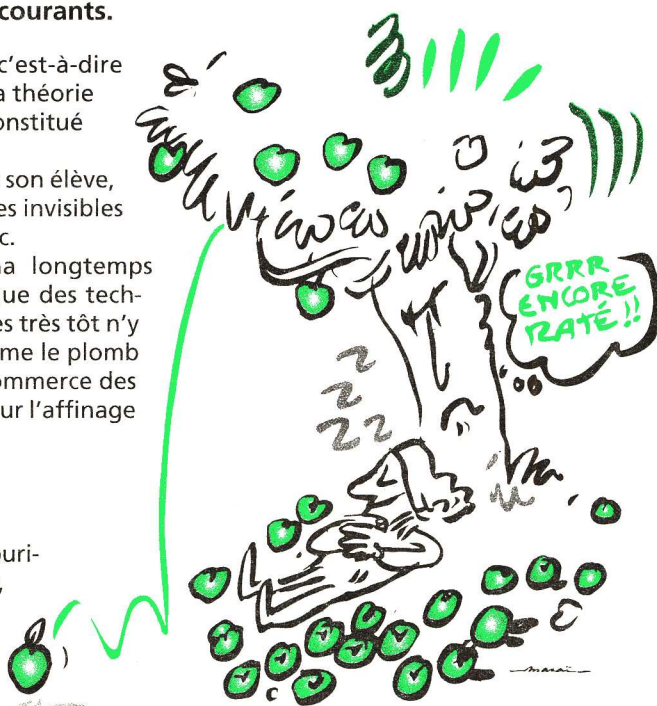 courants.
c'est-à-dire
a théorie
onstitué
son élève,
es invisibles
c.
na longtemps
ue des tech-
es très tôt n'y
me le plomb
ommerce des
ur l'affinage
ouri-
GRRR
ENCORE
RATÉ !!
z
z
z z